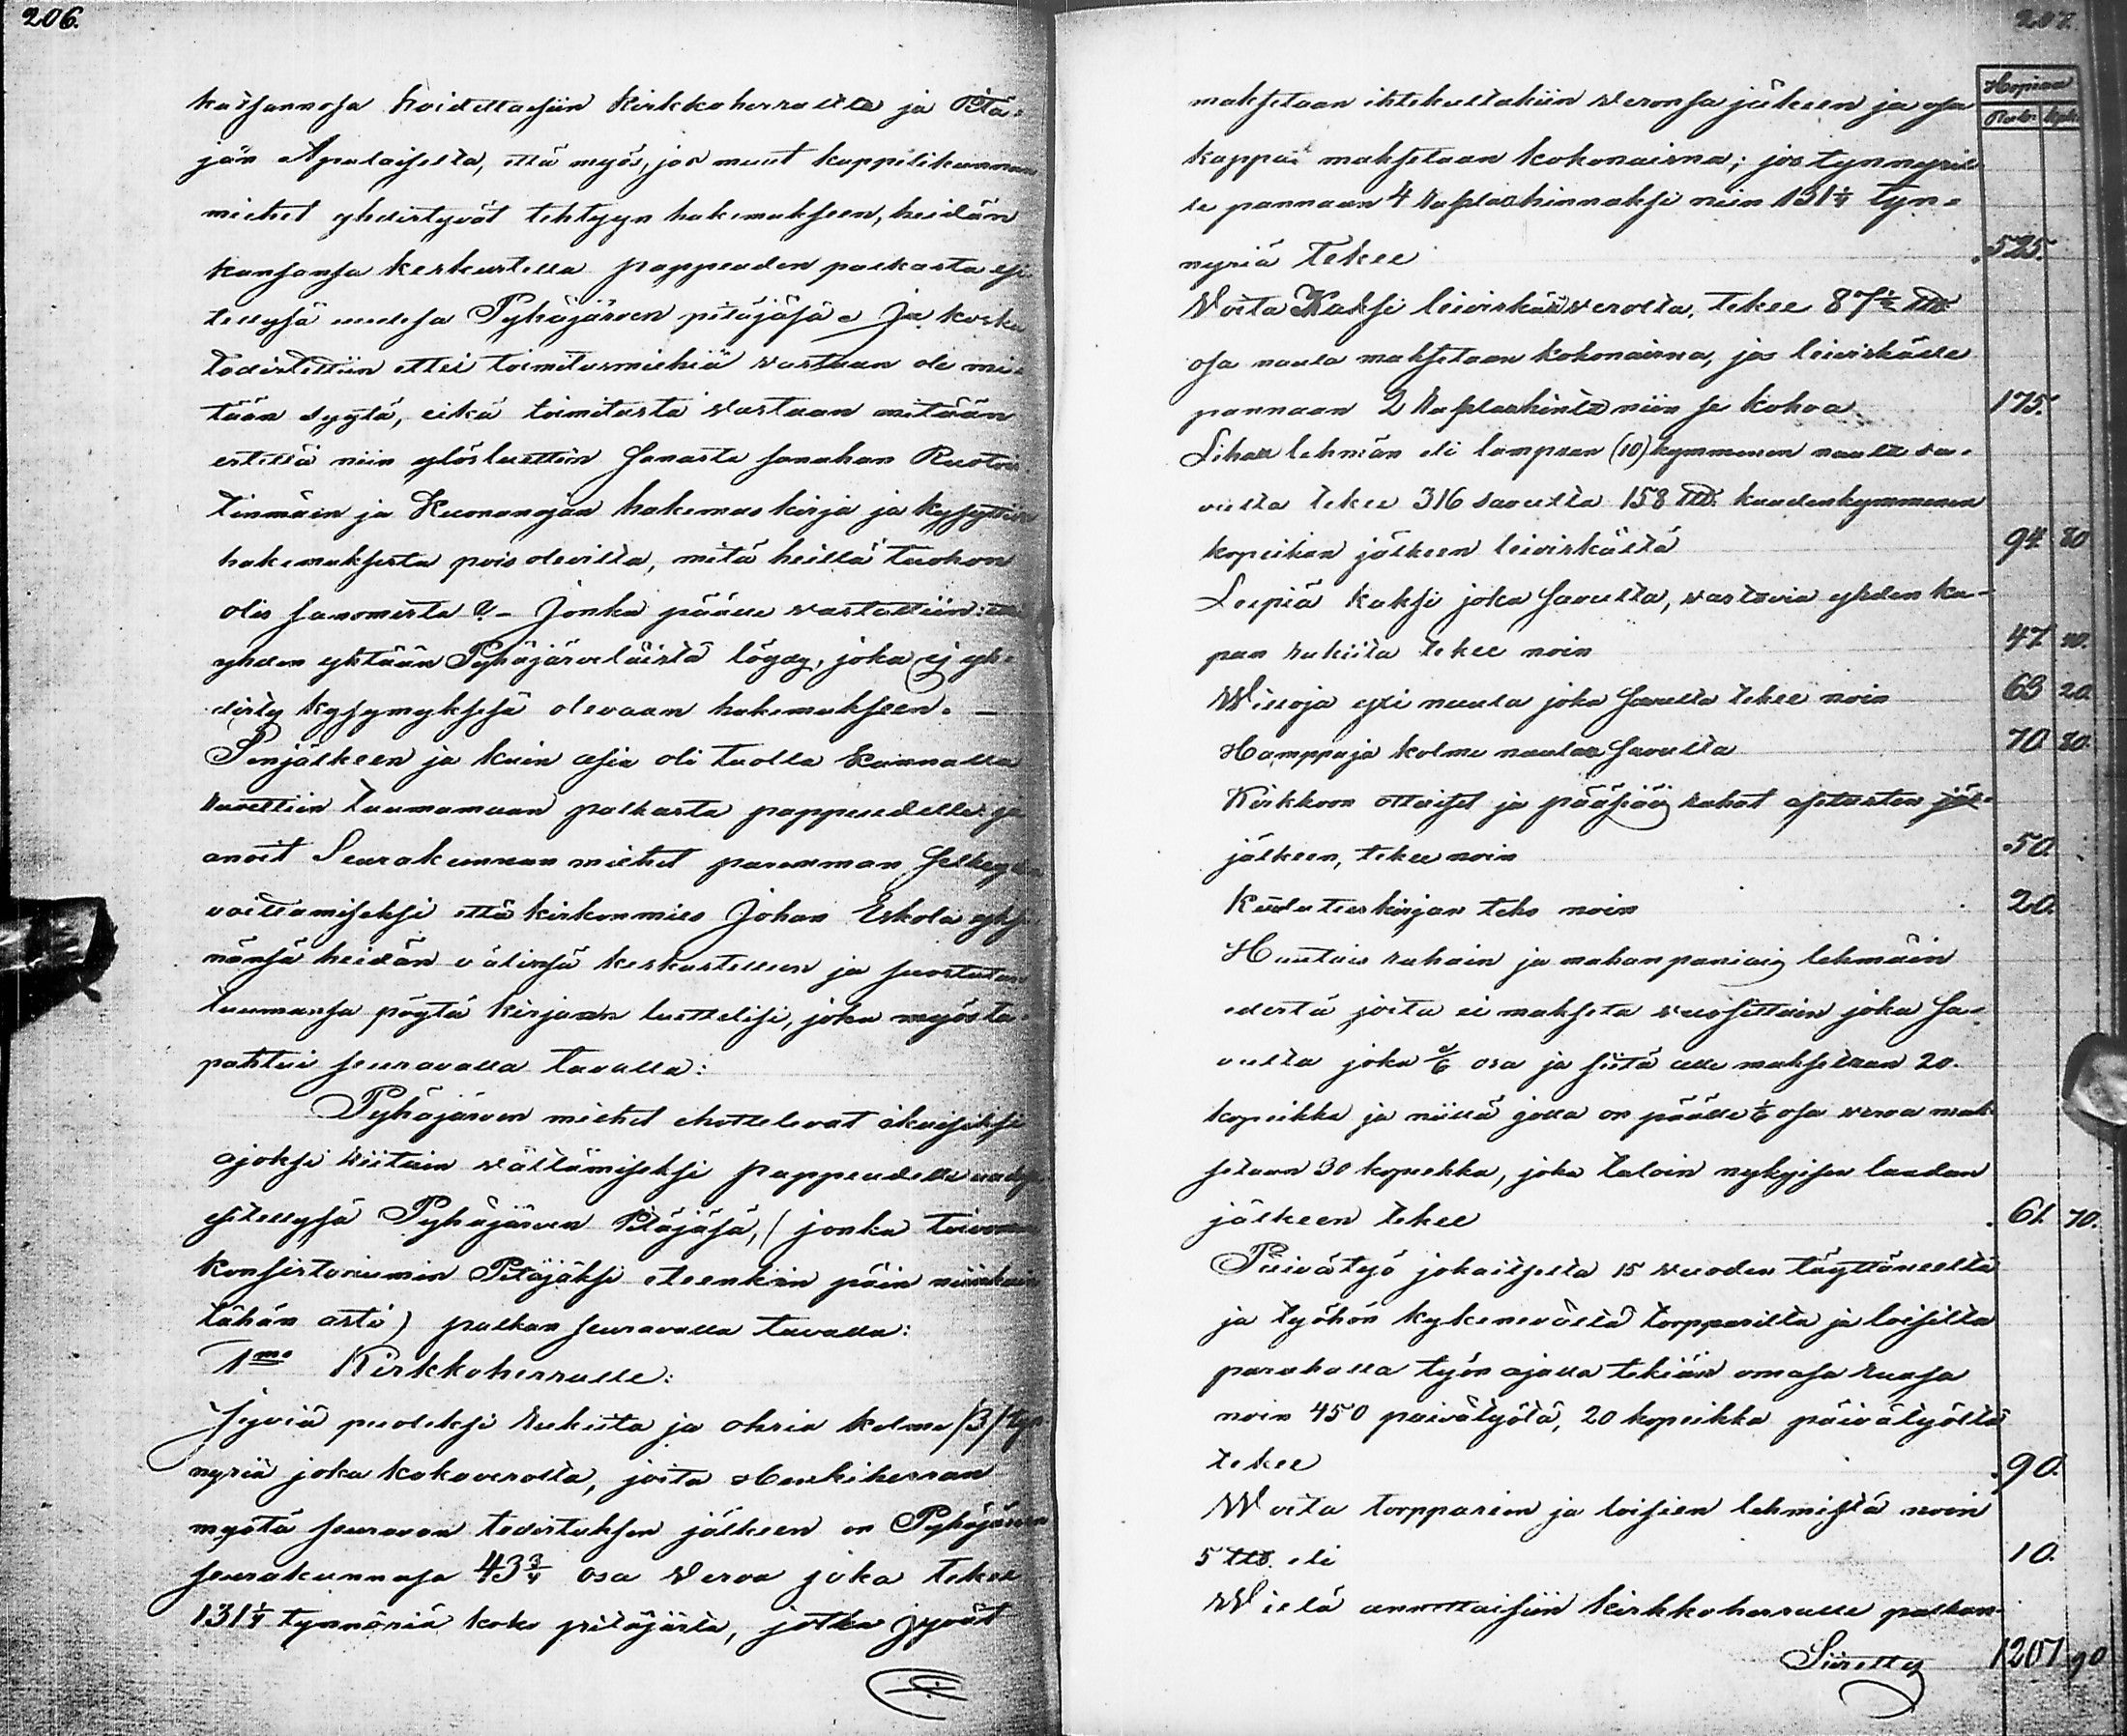 206.
kaʃsannoʃa hoidettaiʃiin Kirkkoherralta ja Pitä-
jän Apulaiʃelta, että myös, jos muut kappelikunnan
miehet yhdistyvät tehtyyn hakemukʃeen, heidän
kanʃanʃa keskustella pappeuden palkasta eʃi
tellyʃä uudeʃa Pyhäjärven pitäjäʃä. Ja koska
todistettiin ettei toimitusmiehiä vastaan ole mi-
tään syytä, eikä toimitusta vastaan mitään
estettä niin ylösluettiin ʃanasta ʃanahan Ruoto-
tinmäin ja Kuonanojan hakemuskirja ja kyʃyttiin
hakemukʃesta pois olevilta, mitä heillä tuohon
olis ʃanomista?- Jonka päälle vastattiin: ettei
yhden yhtään Pyhäjärveläistä löydy, joka ej yh-
disty kyʃymykʃeʃä olevaan hakemukʃeen. —
Senjälkeen ja kuin aʃia oli tuolla kannalla
ruvettiin tuumamaan palkasta pappeudelle ja
anoit Seurakunnan miehet paremman ʃelkeyden
voittamiʃekʃi että kirkonmies Johan Eskola yhʃä
nänʃä heidän välinʃä keskustelleen ja ʃuostutun
tuumanʃa pöytä kirjaan luettelisi, joka myös ta-
pahtui ʃeuravalla tavalla:
Pyhäjärven miehet ehottelevat ikuiʃikʃi
ajoksi riitain vältämiʃekʃi pappeudelle uudeʃa
eʃitellyʃä Pyhäjärven Pitäjäʃä, (jonka toivovan
konʃistoriumin Pitäjäkʃi eteenkin päin niinkuin
tähän asti) palkan ʃeuravalla tavalla:
1mo Kirkkoherralle:
Jyviä puolekʃi rukiita ja ohria kolme /3/ tyn
nyriä joka kokoverolta, joita Henkiherran
myötä ʃeuravan todistukʃen jälkeen on Pyhäjärven
ʃeurakunnaʃa 43¾ osa Veroa joka tekee
131¼ tynnöriä koko pitäjästä, jotka jyvät
207.
Hopiaa
Rubl. kpk.
makʃetaan itsekultakiin Veronʃa jälkeen ja oʃa
kappa makʃetaan kokonaisna; jos tynnyril-
le pannaan 4 Ruplaa hinnakʃi niin 131¼ tyn-
nyriä tekee 525.
Voita Kakʃi leiviskää verolta, tekee 87½ Ltt
oʃa naula makʃetaan kokonaisna, jos leiviskälle
pannaan 2 Ruplaa hinta niin ʃe kokoa 175.
Lihaa lehmän eli lampaan (10) kymmenen naulaa sa-
vulta tekee 316 savulta 158 Ltt. kuudenkymmenen
kopeikan jälkeen leiviskältä 94 80
Leipiä kakʃi joka ʃavulta, vastavia yhden ka-
pan rukiita tekee noin 47 40.
Willoja yxi naula joka ʃavulta tekee noin 63 20.
Hamppuja kolme naulaa ʃavulta 70 80.
Kirkkoon ottaiʃet ja pääʃiäis rahat aʃetusten jäl-
jälkeen, tekee noin 50.
Kuulutuskirjan teko noin 20.
Hautais rahain ja mahanpaniais lehmäin
edestä joita ei makʃeta vuoʃittain joka ʃa-
vulta joka 1/6 osa ja ʃiitä alle makʃetaan 20.
kopeikka ja niillä jolla on päälle 1/6 oʃa veroa mak
ʃetaan 30 kopeikka, joka taloin nykyiʃen laadan
jälkeen tekee 61. 70.
Päivätyö jokaitʃelta 15 vuoden täyttäneeltä
ja työhön kykenevältä torpparilta ja loiʃilta
parahalla työn ajalla tekiän omaʃa ruaʃa
noin 450 päivätyötä, 20 kopeikka päivätyöltä
tekee 90.
Woita torpparien ja loiʃien lehmiʃtä noin
5 Ltt. eli 10.
Wielä annettaiʃiin Kirkkoherralle palkan
Siiretty 1207 90